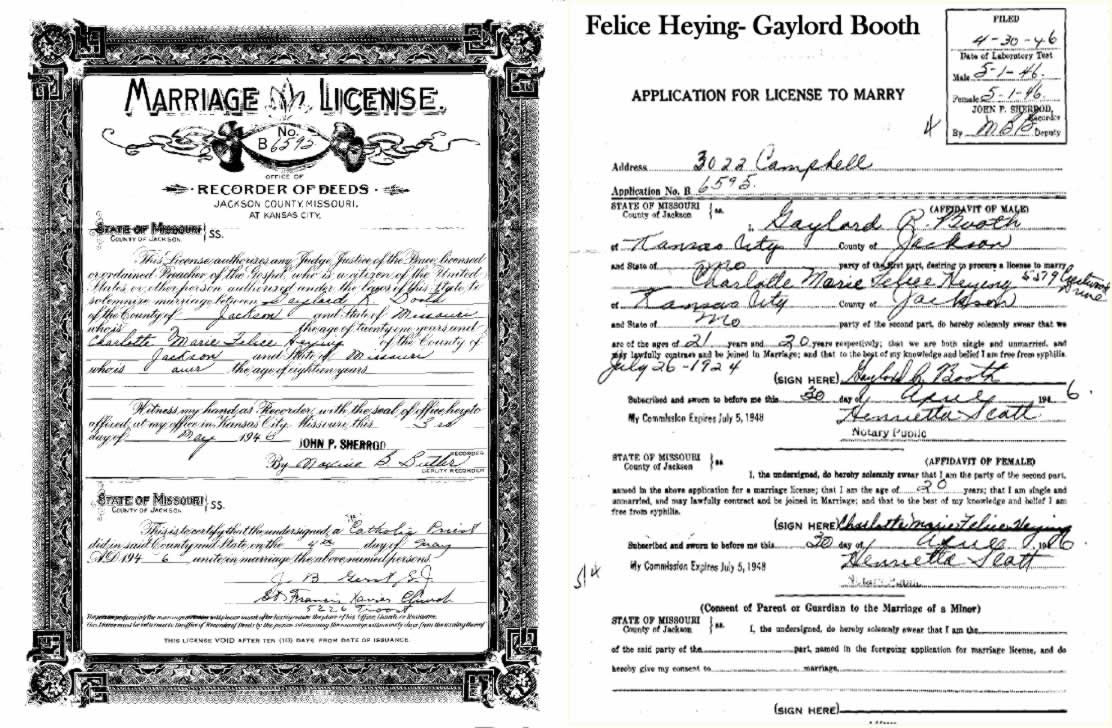 MARRIAGE LICENSE.
No.
B 6595
OFFICE OF
RECORDER OF DEEDS
JACKSON COUNTY, MISSOURI.
AT KANSAS CITY.
STATE OF MISSOURI
COUNTY OF JACKSON. SS.
This License authorizes any Judge, Justice of the Peace, licensed
or ordained Preacher of the Gospel, who is a citizen of the United
States or other person authorized under the laws of this State, to
solemnize marriage between Gaylord R. Booth
of the County of Jackson and State of Missouri
who is the age of twenty one years and
Charlotte Marie Felice Heying of the County of
Jackson and State of Missouri
who is over the age of eighteen years
Witness my hand as Recorder, with the seal of office, hereto
affixed, at my office in Kansas City, Missouri, this 3rd
day of May 1946 JOHN P. SHERROD
RECORDER
By Maxine S. Butler
DEPUTY RECORDER
STATE OF MISSOURI
COUNTY OF JACKSON. SS.
This is to certify that the undersigned, a Catholic Priest
did in said County and State, on the 4th day of May
A.D. 1946 unite in marriage the above named persons
St Francis Xavier Church
5226 Troost
THIS LICENSE VOID AFTER TEN (10) DAYS FROM DATE OF ISSUANCE.
Felice Heying- Gaylord Booth
FILED
4-30-46
Date of Laboratory Test
Male 5-1-46.
Female 5-1-46.
JOHN P. SHERROD,
Recorder
By M.B.B. Deputy
4
APPLICATION FOR LICENSE TO MARRY
Address 3022 Campbell
Application No. B 6595.
STATE OF MISSOURI
County of Jackson ss.
(AFFIDAVIT OF MALE)
I, Gaylord R. Booth
of Kansas City County of Jackson
and State of Mo party of the first part, desiring to procure a license to marry
Charlotte Marie Felice Heying 5579
of Kansas City County of Jackson
and State of Mo party of the second part, do hereby solemnly swear that we
are of the ages of 21 years and 20 years respectively; that we are both single and unmarried, and
may lawfully contract and be joined in Marriage; and that to the best of my knowledge and belief I am free from syphilis.
July 26-1924
(SIGN HERE) Gaylord R. Booth
Subscribed and sworn to before me this 30 day of April 1946
My Commission Expires July 5, 1948 Henrietta Scott
Notary Public
STATE OF MISSOURI
County of Jackson ss.
(AFFIDAVIT OF FEMALE)
I, the undersigned, do hereby solemnly swear that I am the party of the second part,
named in the above application for a marriage license; that I am the age of 20 years; that I am single and
unmarried, and may lawfully contract and be joined in Marriage; and that to the best of my knowledge and belief I am
free from syphilis.
(SIGN HERE) Charlotte Marie Felice Heying
Subscribed and sworn to before me this 30 day of April 1946
My Commission Expires July 5, 1948 Henrietta Scott
Notary Public
(Consent of Parent or Guardian to the Marriage of a Minor)
STATE OF MISSOURI
County of Jackson ss.
I, the undersigned, do hereby solemnly swear that I am the
of the said party of the part, named in the foregoing application for marriage license, and do
hereby give my consent to marriage,
(SIGN HERE)